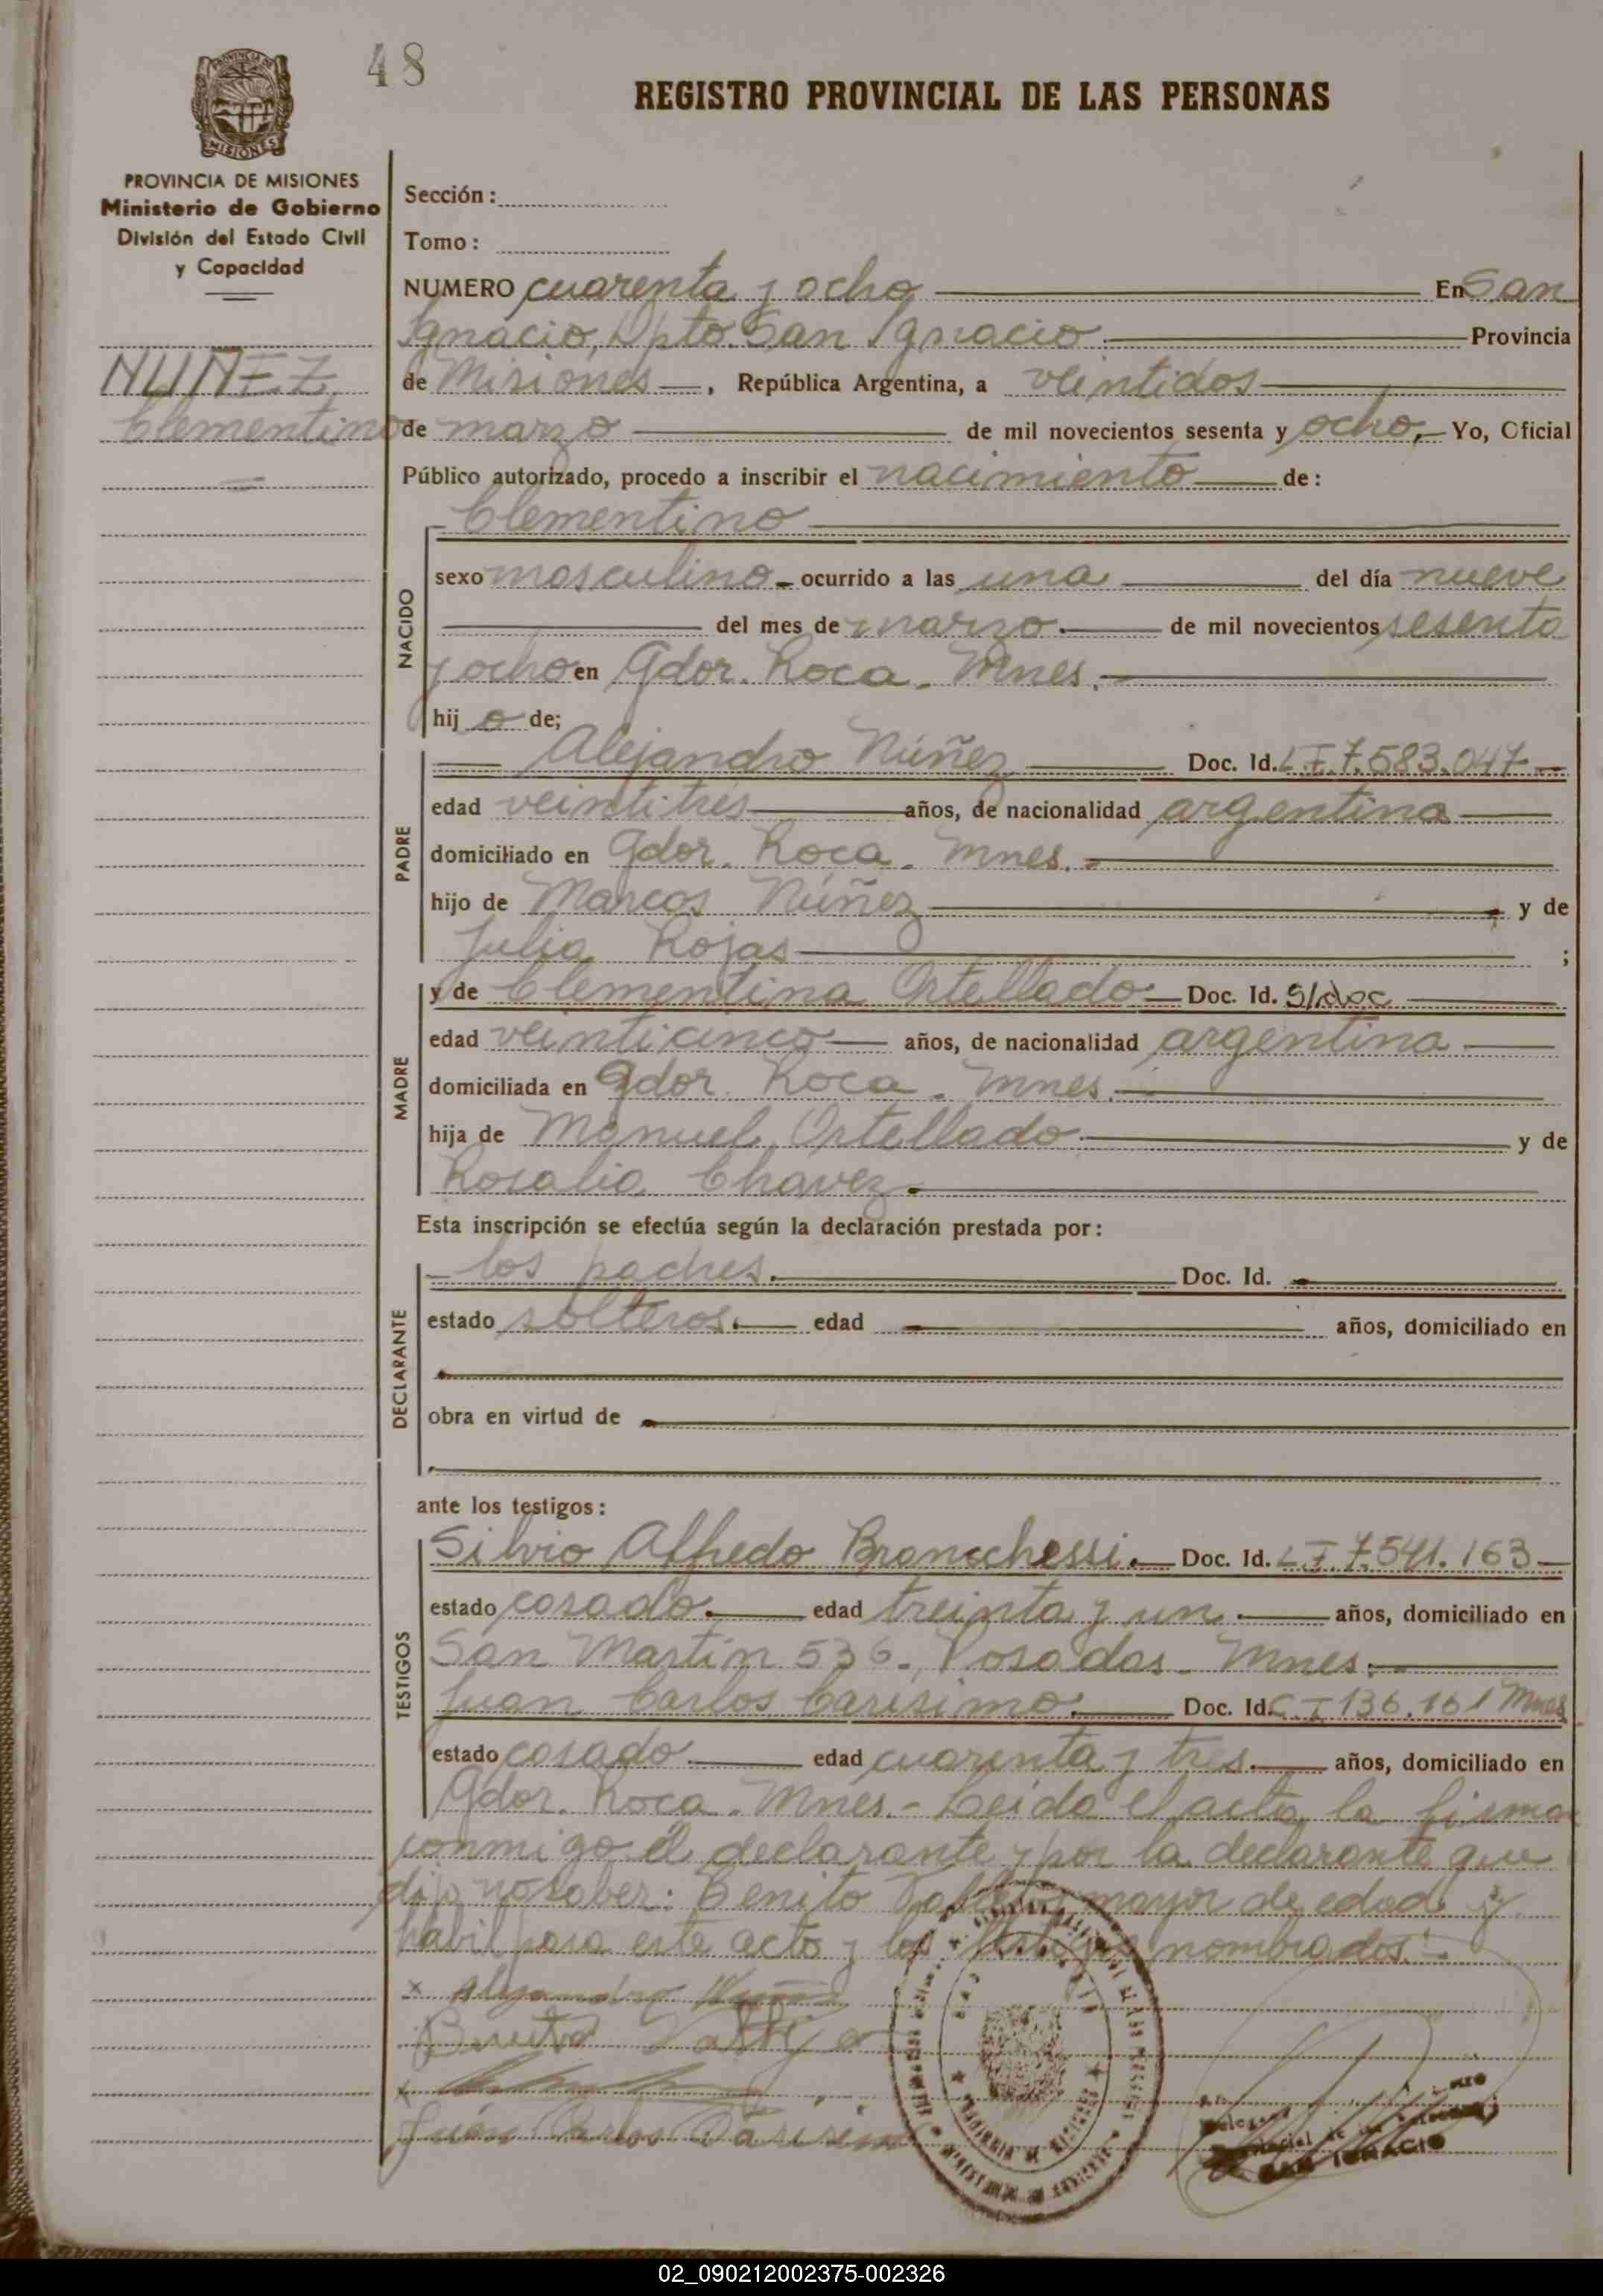 48
REGISTRO PROVINCIAL DE LAS PERSONAS
PROVINCIA DE
MISIONES
PROVINCIA DE MISIONES
Ministerio de Gobierno
División del Estado Civil
y Capacidad
NUÑEZ
Clementino
Sección:
Tomo:
NUMERO cuarenta y ocho En San
Ignacio, Dpto. San Ignacio Provincia
de Misiones, República Argentina, a veintidos
de marzo de mil novecientos sesenta y ocho, Yo, Oficial
Público autorizado, procedo a inscribir el nacimiento de:
NACIDO
Clementino
sexo masculino ocurrido a las una del día nueve
del mes de marzo de mil novecientos sesenta
y ocho en Gdor. Roca. Mnes.
hij o de;
PADRE
Alejandro Núñez Doc. Id. L I 7.583.047
edad veintitrés años, de nacionalidad argentina
domiciliado en Gdor. Roca. Mnes.
hijo de Marcos Núñez y de
Julia Rojas ;
MADRE
y de Clementina Ortellado Doc. Id. S/doc
edad veinticinco años, de nacionalidad argentina
domiciliada en Gdor. Roca. Mnes.
hija de Manuel Ortellado y de
Rosalia Chavez.
Esta inscripción se efectúa según la declaración prestada por:
DECLARANTE
los padres. Doc. Id.
estado solteros. edad años, domiciliado en
obra en virtud de
ante los testigos:
TESTIGOS
Silvio Alfredo Doc. Id. L I 7.541.163
estado casado. edad treinta y un. años, domiciliado en
San Martín 536. Posadas. Mnes.
Juan Carlos Carisimo. Doc. Id. C I 136.161 Mnes
estado casado. edad cuarenta y tres. años, domiciliado en
Gdor. Roca. Mnes. - Leida el acta, la firma
conmigo el declarante y por la declarante que
dijo no saber: Benito mayor de edad y
habil para este acto y los testigos nombrados.
x Alejandro Nuñez
Benito
x
Juan Carlos Carisimo
SAN IGNACIO
02_090212002375-002326